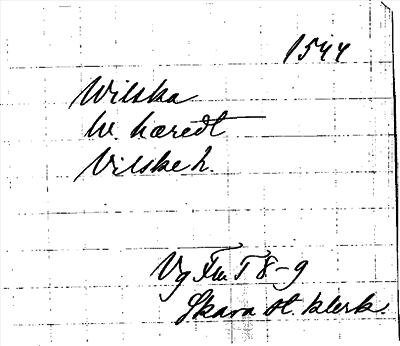 1544
Wilska
W. hæredt
Vilske h.
Vg Fm T 8-9
Skara st. klerk.